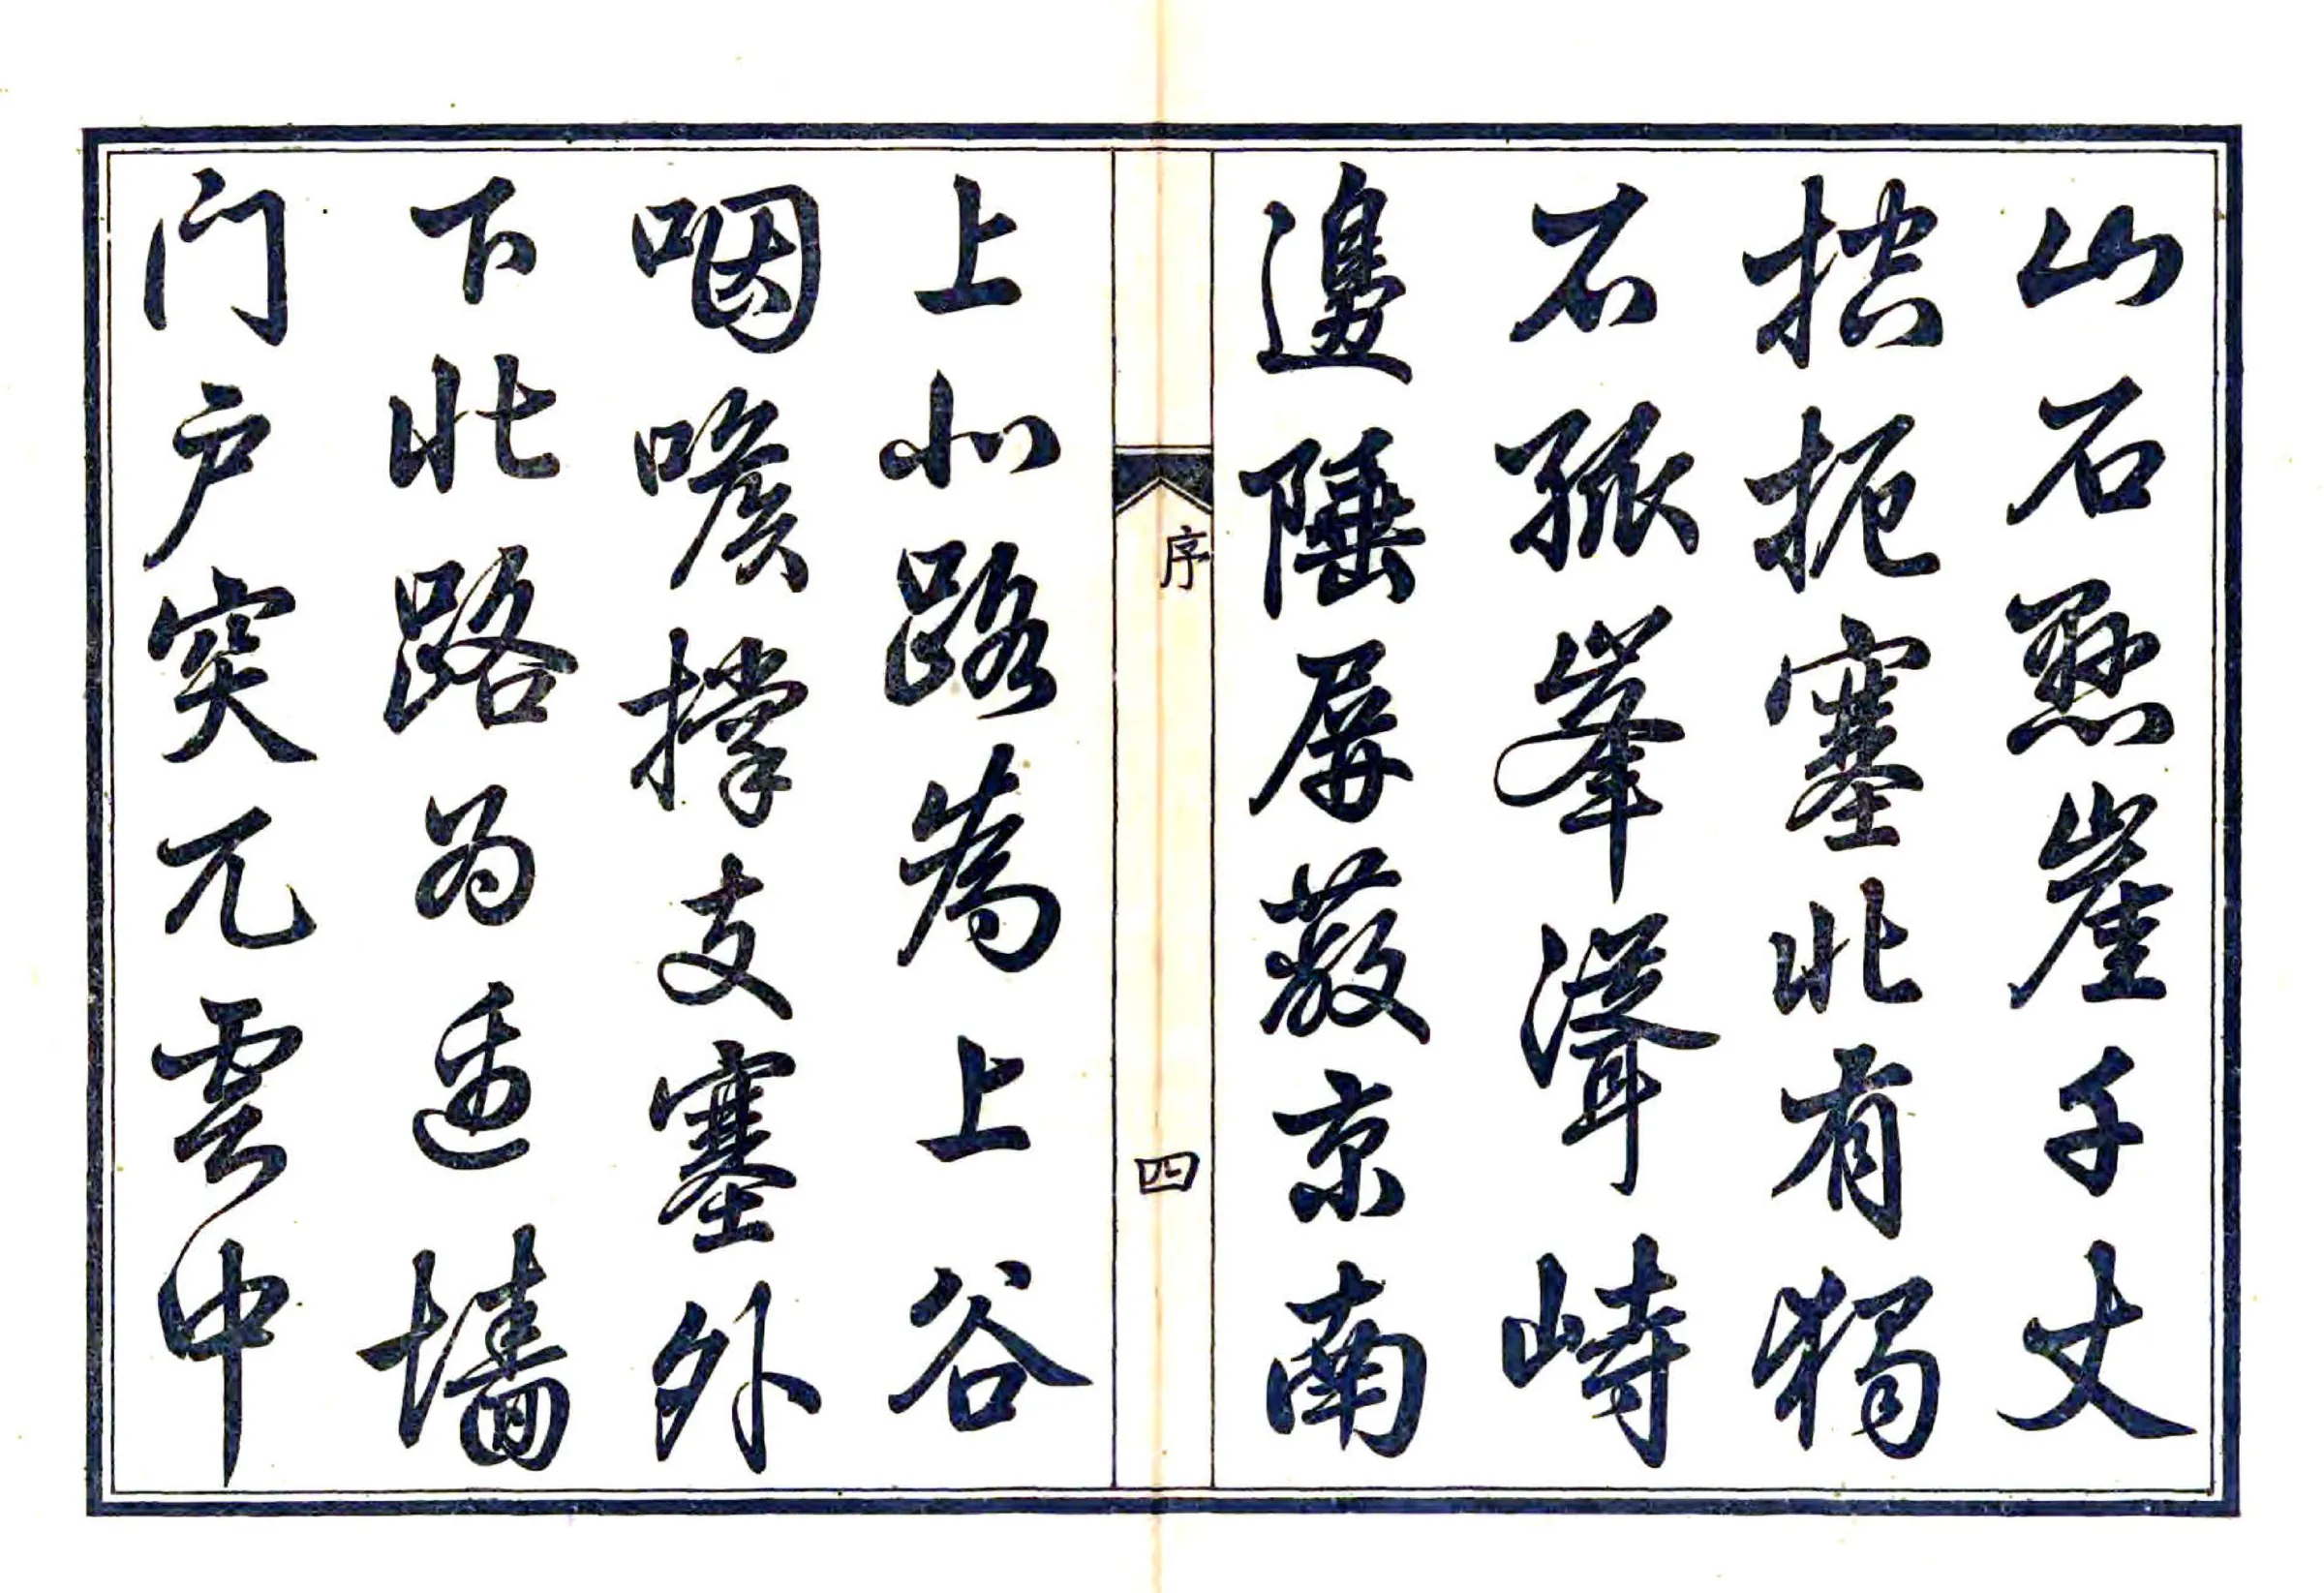 山石懸崖千丈
控扼塞北有獨
石孤峯聳峙
邊陲屏蔽京南
序
四
上北路為上谷
咽喉撐支塞外
下北路為邊墻
門户突兀雲中